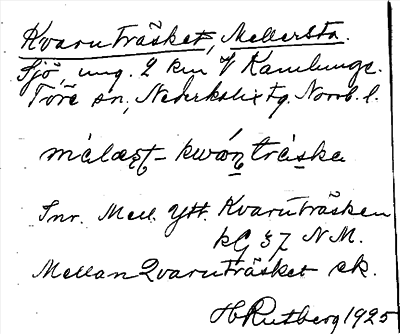 Kvarnträsket, Mellersta.
Sjö, ung. 2 km V Kamlunge.
Töre sn, Nederkalix tg. Norrb. l.
mélæst- kwóṇtrǻska
Inr. Mell. Ytt. Kvarnträsken
kG 37 N M.
Mellan Qvarnträsket ek.
H Rutberg 1925